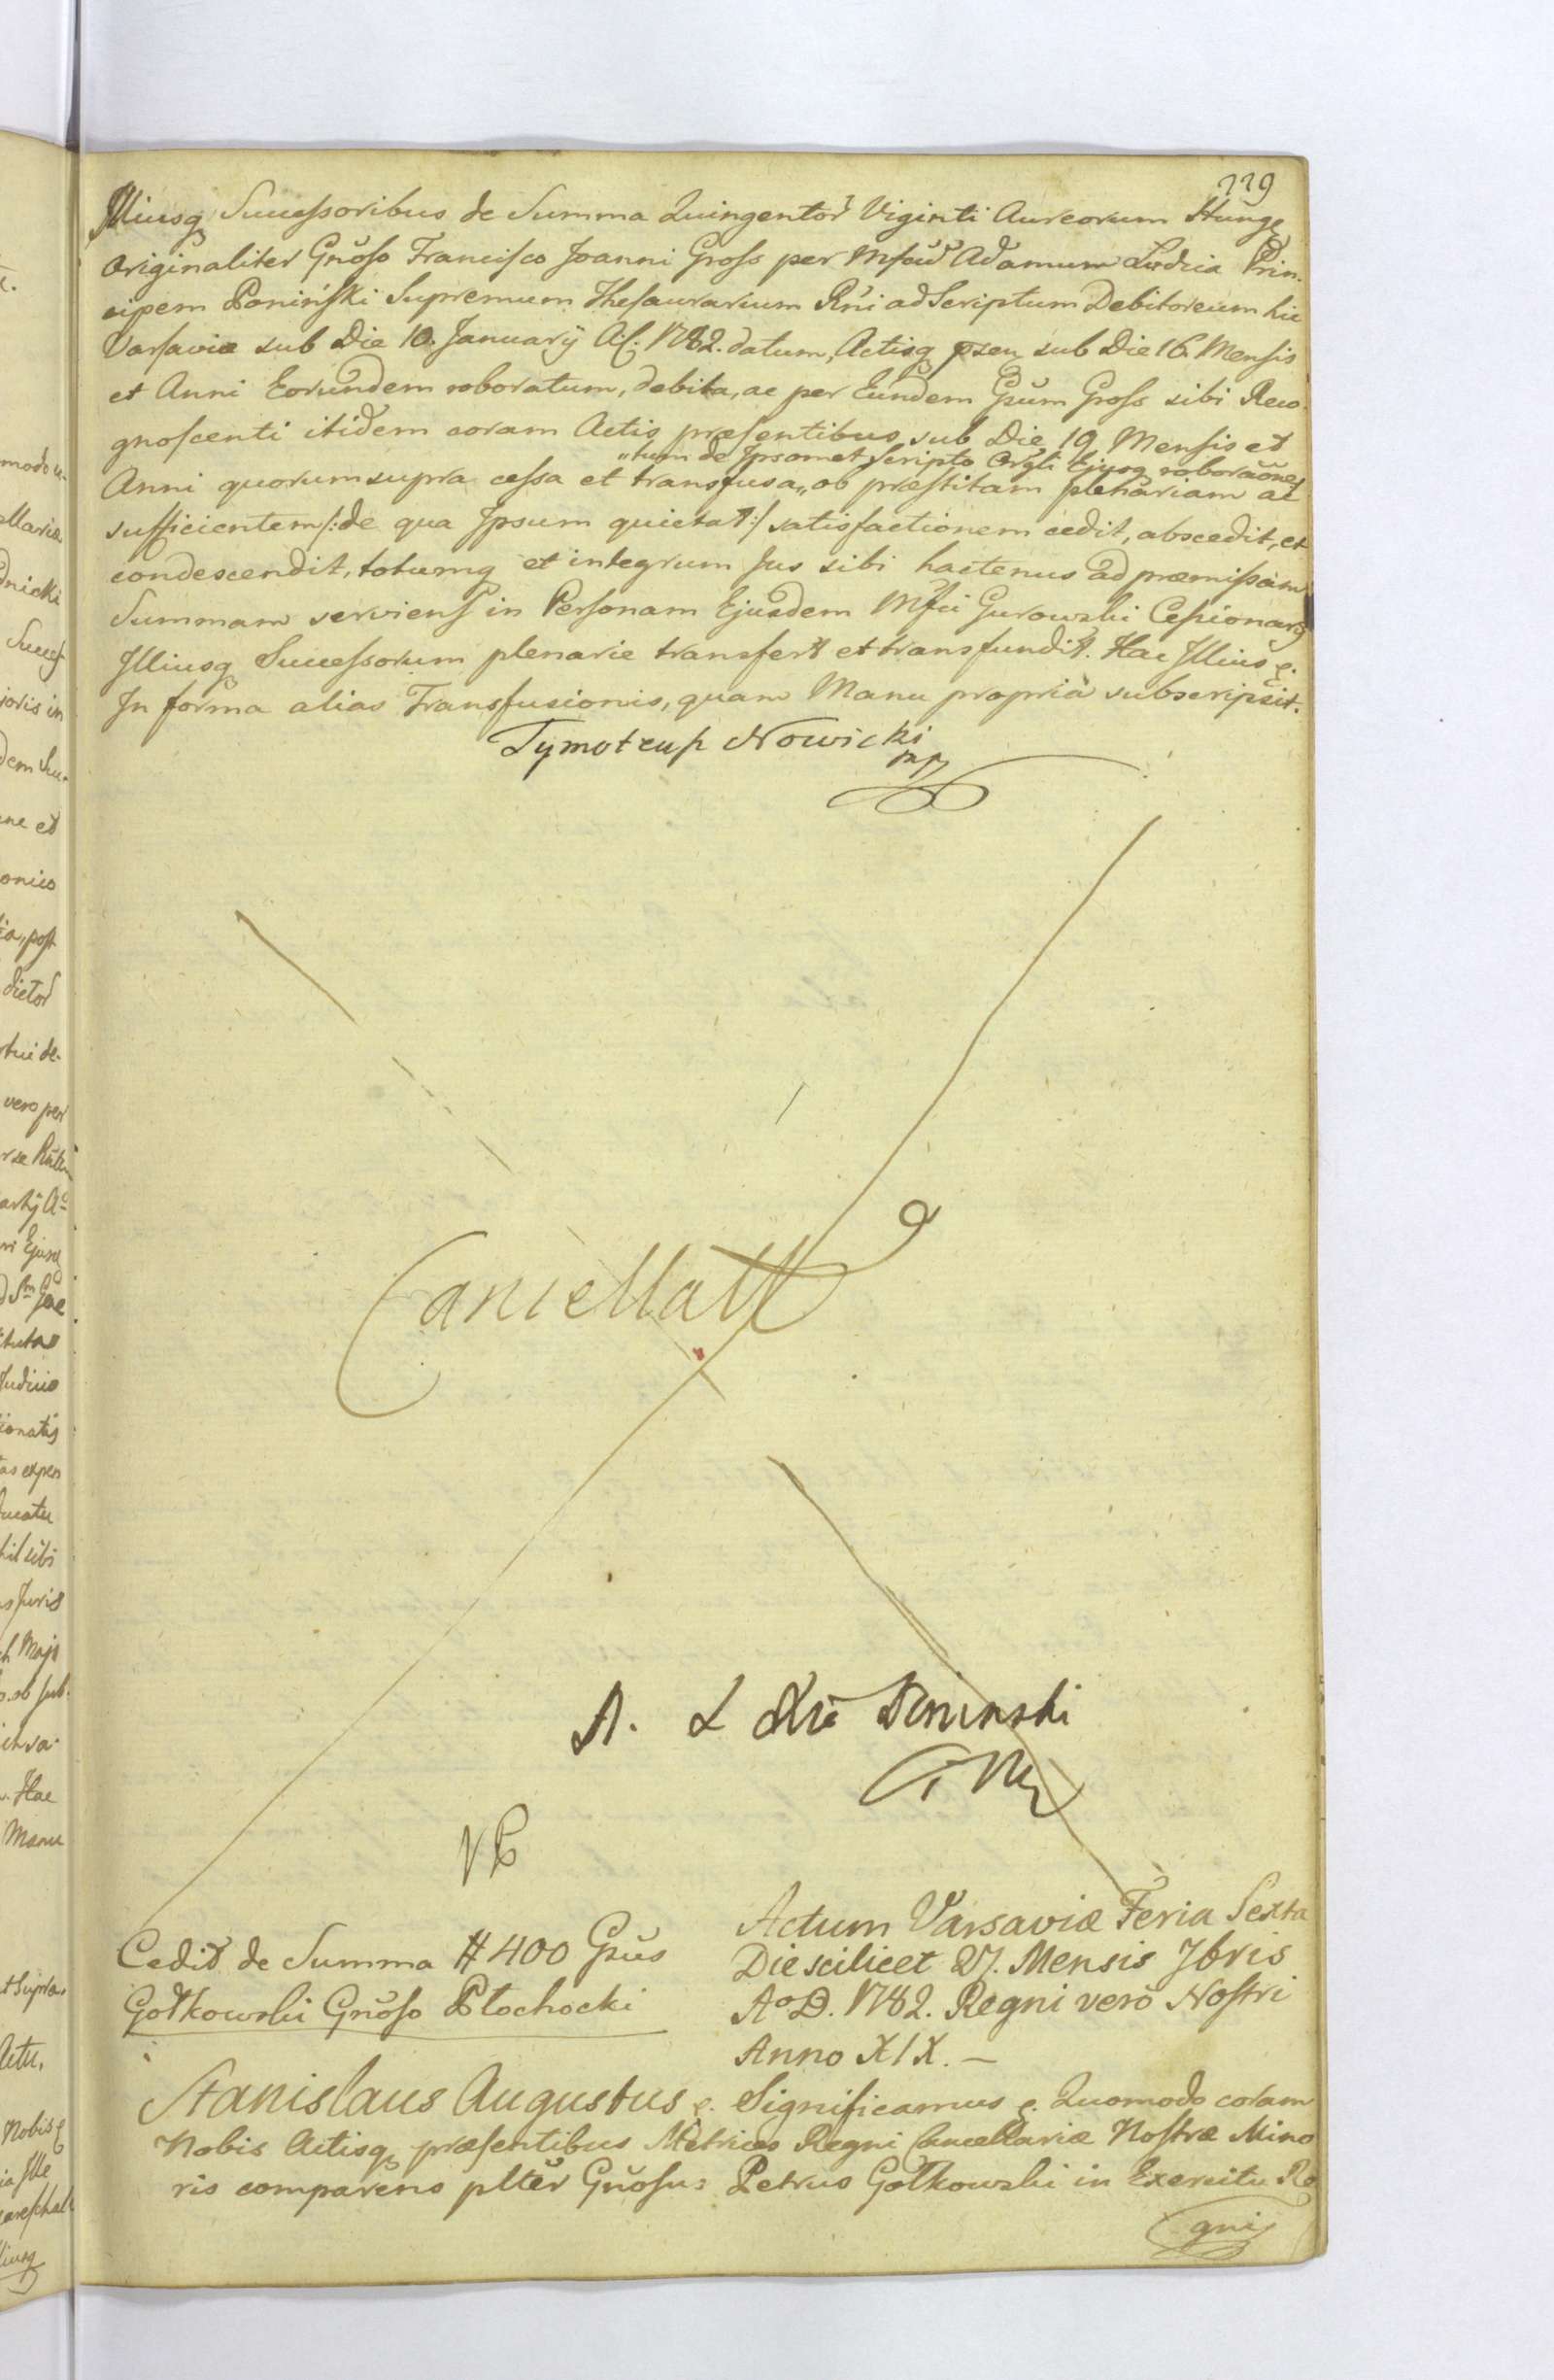 229
Illiusq Successoribus de Summa Quingentor Viginti Aureorum Hung
originaliter Gnoso Francisco Joanni Gross per Mfcum Adamum Lodzia Prin-
cipem Poniński Supremum Thesaurarium Rni ad Scriptum Debitoreum hic
Varsaviæ sub Die 10. January A. C. 1782. datum, Actisq psen sub Die 16. Mensis
et Anni Eorundem roboratum, debita, ac per Eundem Gnum Gross sibi Reco-
gnoscenti itidem coram Actis præsentibus sub Die 19 Mensis et
„tum de Ipsomet Scripto Orgli Ejusq roboraõne
Anni quorum supra cessa et transfusa„ ob præstitam plenariam ac
sufficientem /:de qua Ipsum quietat:/ satisfactionem cedit, abscedit, et
condescendit, totumq et integrum Jus sibi hactenus ad præmissam
Summam serviens in Personam Ejusdem Mfci Gurowski Cessionarij
Illiusq Successorum plenarie transfert et transfundit. Hac Illius &.
In forma alias Transfusionis, quam Manu propria subscripsit.
Tymoteusz Nowicki
mp
Cancellatt
A. L Xże Poninski
VP
Cedit de Summa # 400 Gnus
Gołkowski Gnoso Płochocki
Actum Varsaviæ Feria Sexta
Die scilicet 27. Mensis 7bris
Ao D. 1782. Regni vero Nostri
Anno XIX. —
Stanislaus Augustus &. Significamus &. Quomodo coram
Nobis Actisq præsentibus Metrices Regni Cancellariæ Nostræ Mino
ris comparens plter Gnosus Petrus Gołkowski in Exercitu Re
gni